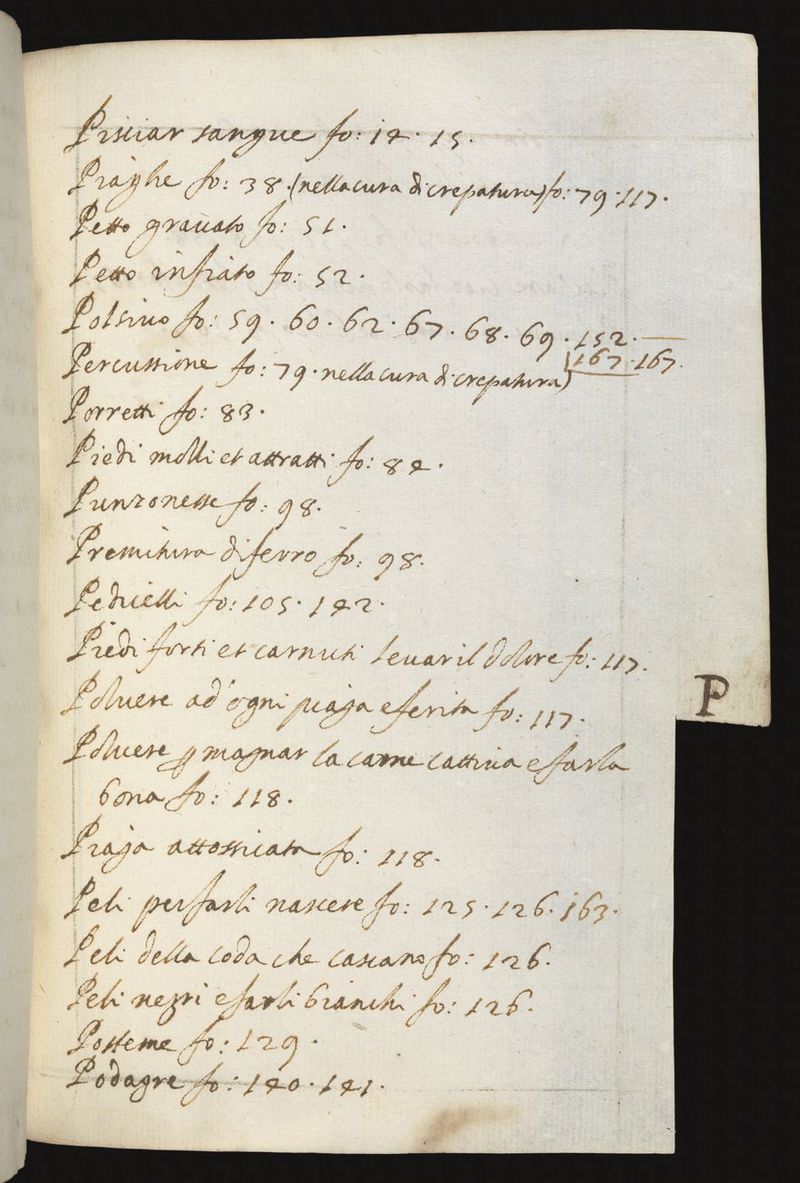 Pisciar sangue fo: 14. 15.
Piaghe fo: 38. (nella cura di crepatura) fo: 79. 117.
Petto grauato fo: 51.
Petto infiato fo: 52.
Polsiuo fo: 59. 60. 62. 67. 68. 69. 152.
167. 167.
Percussione fo: 79. nella cura di crepatura)
Porretti fo: 83.
Piedi molli et attratti fo: 84.
Punzonesse fo: 98.
Premitura di ferro fo: 98.
Peducelli fo: 105. 142.
Piedi forti et carnuti leuar il dolore fo: 117.
Poluere ad' ogni piaga e ferita fo: 117.
Poluere p magnar la carne cattiua e farla
bona fo: 118.
Piaga attossicata fo: 118.
Peli per farli nascere fo: 125. 126. 163.
Peli della coda che cascano fo: 126.
Peli negri e farli bianchi fo: 126.
Posteme fo: 129.
Podagre fo: 140. 141.
P